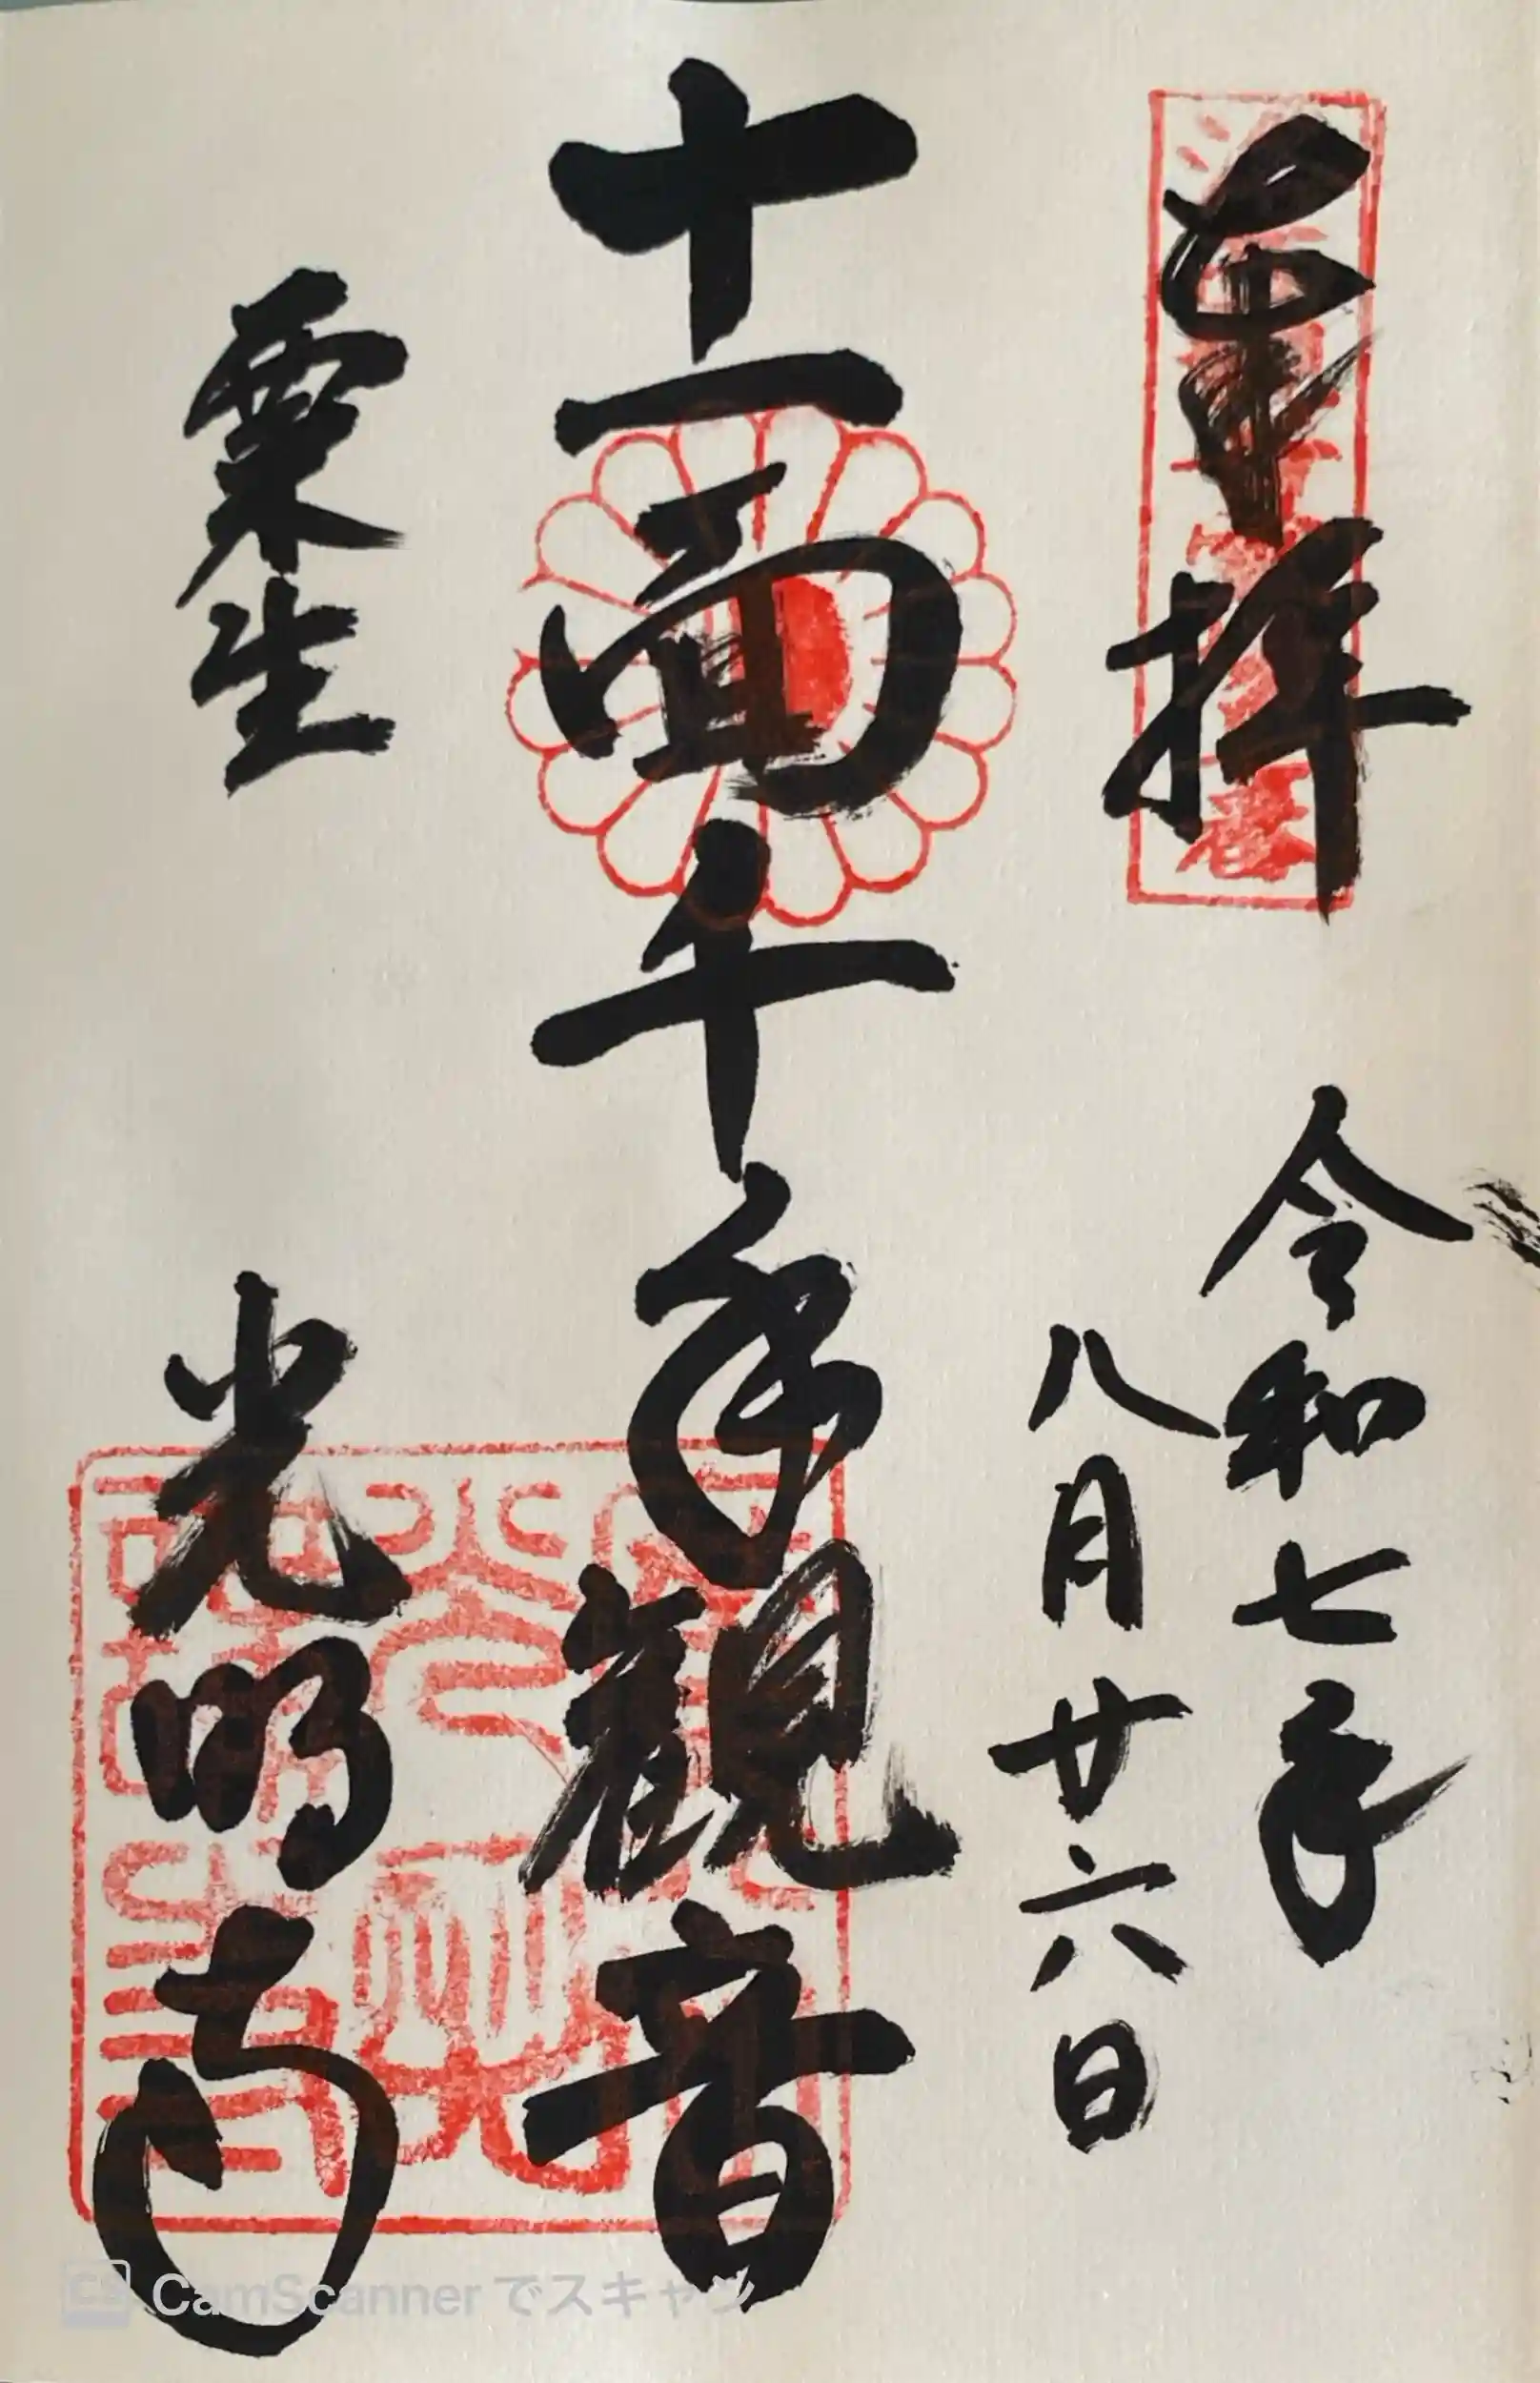 奉拝
令和七年
八月廿六日
十一面千手観音
粟生
光明寺
CamScanner でスキャン